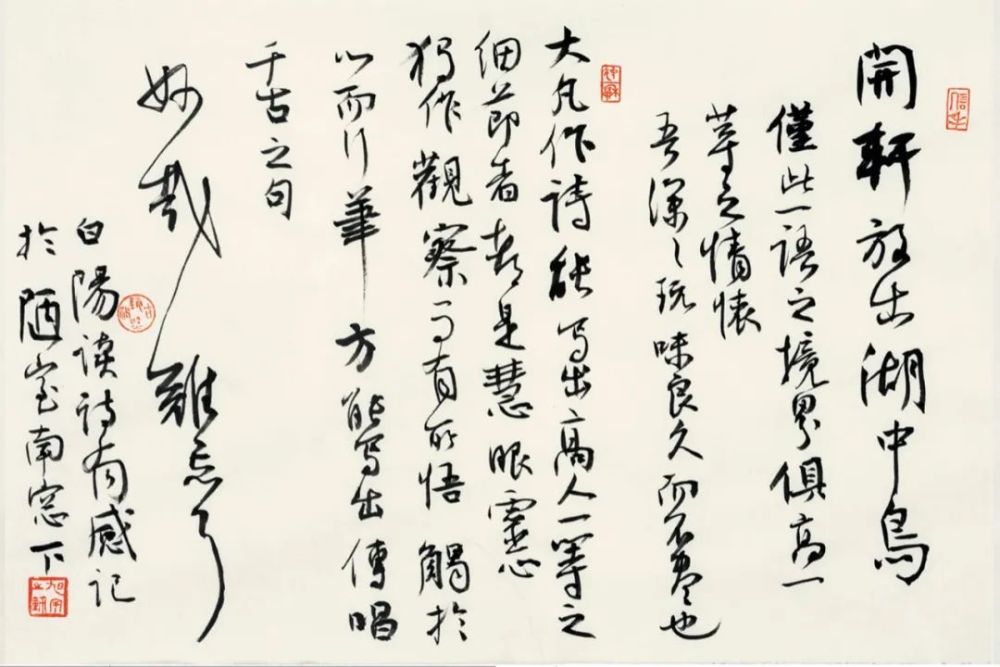 開軒放出湖中鳥
僅此一語之境界俱高一
等之情懷
吾深々玩味良久而不盡也
大凡作詩能写出高人一等之
細節者都是慧眼靈心
獨作觀察有所悟觸於
心而行筆方能写出傳唱
千古之句
妙哉難忘
白陽读诗有感记
於陋室南窓下